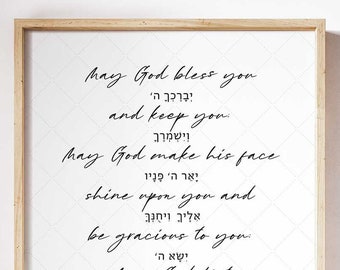 May God bless you
יְבָרֶכְךָ ה'
and keep you.
וְיִשְׁמְרֶךָ
May God make his face
יָאֵר ה' פָּנָיו
shine upon you and
אֵלֶיךָ וִיחֻנֶּךָּ
be gracious to you.
יִשָּׂא ה'